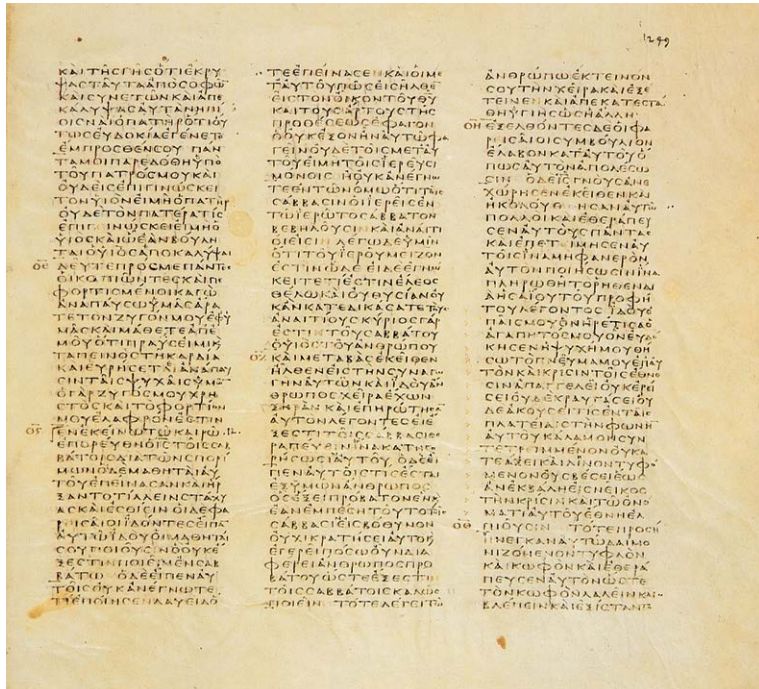 1249
ΚΑΙΤΗΣΓΗΣΟΤΙΕΚΡΥ
ΨΑΣΤΑΥΤΑΑΠΟΣΟΦΩ
ΚΑΙΣΥΝΕΤΩΝΚΑΙΑΠΕ
ΚΑΛΥΨΑΣΑΥΤΑΝΗΠΙ
ΟΙΣΝΑΙΟΠΑΤΗΡΟΤΙΟΥ
ΤΩΣΕΥΔΟΚΙΑΕΓΕΝΕΤΟ
ΕΜΠΡΟΣΘΕΝΣΟΥ ΠΑΝ
ΤΑΜΟΙΠΑΡΕΔΟΘΗΥΠΟ
ΤΟΥΠΑΤΡΟΣΜΟΥΚΑΙ
ΟΥΔΕΙΣΕΠΙΓΙΝΩΣΚΕΙ
ΤΟΝΥΙΟΝΕΙΜΗΟΠΑΤΗΡ
ΟΥΔΕΤΟΝΠΑΤΕΡΑΤΙΣ
ΕΠΙΓΙΝΩΣΚΕΙΕΙΜΗΟ
ΥΙΟΣΚΑΙΩΕΑΝΒΟΥΛΗ
ΤΑΙΟΥΙΟΣΑΠΟΚΑΛΥΨΑΙ
ΔΕΥΤΕΠΡΟΣΜΕΠΑΝΤΕΣ
ΟΙΚΟΠΙΩΝΤΕΣΚΑΙΠΕ
ΦΟΡΤΙΣΜΕΝΟΙΚΑΓΩ
ΑΝΑΠΑΥΣΩΥΜΑΣΑΡΑ
ΤΕΤΟΝΖΥΓΟΝΜΟΥΕΦΥ
ΜΑΣΚΑΙΜΑΘΕΤΕΑΠΕ
ΜΟΥΟΤΙΠΡΑΥΣΕΙΜΙΚ
ΤΑΠΕΙΝΟΣΤΗΚΑΡΔΙΑ
ΚΑΙΕΥΡΗΣΕΤΑΙΑΝΑΠΑΥ
ΣΙΝΤΑΙΣΨΥΧΑΙΣΥΜ
ΟΓΑΡΖΥΓΟΣΜΟΥΧΡΗ
ΣΤΟΣΚΑΙΤΟΦΟΡΤΙΟΝ
ΜΟΥΕΛΑΦΡΟΝΕΣΤΙΝ
ΕΝΕΚΕΙΝΩΤΩΚΑΙΡΩ
ΕΠΟΡΕΥΘΗΟΙΣΤΟΙΣΣΑΒ
ΒΑΤΟΙΣΔΙΑΤΩΝΣΠΟΡΙ
ΜΩΝΟΙΔΕΜΑΘΗΤΑΙΑΥ
ΤΟΥΕΠΕΙΝΑΣΑΝΚΑΙΗΡ
ΞΑΝΤΟΤΙΛΛΕΙΝΣΤΑΧΥ
ΑΣΚΑΙΕΣΘΙΕΙΝΟΙΔΕΦΑ
ΡΕΙΣΑΙΟΙΙΔΟΝΤΕΣΕΙΠΑ
ΑΥΤΩΙΔΟΥΟΙΜΑΘΗΤΑΙ
ΣΟΥΠΟΙΟΥΣΙΝΟΟΥΚΕ
ΞΕΣΤΙΝΠΟΙΕΙΝΕΝΣΑΒ
ΒΑΤΩ ΟΔΕΕΙΠΕΝΑΥ
ΤΟΙΣΟΥΚΑΝΕΓΝΩΤΕ
ΤΙΕΠΟΙΗΣΕΝΔΑΥΕΙΔΟ
ΤΕΕΠΕΙΝΑΣΕΝΚΑΙΟΙΜΕ
ΤΑΥΤΟΥΠΩΣΕΙΣΗΛΘΕ
ΕΙΣΤΟΝΟΙΚΟΝΤΟΥΘΥ
ΚΑΙΤΟΥΣΑΡΤΟΥΣΤΗΣ
ΠΡΟΘΕΣΕΩΣΕΦΑΓΟΝ
ΟΟΥΚΕΞΟΝΗΝΑΥΤΩΦΑ
ΓΕΙΝΟΥΔΕΤΟΙΣΜΕΤΑΥ
ΤΟΥΕΙΜΗΤΟΙΣΙΕΡΕΥΣΙ
ΜΟΝΟΙΣ ΗΟΥΚΑΝΕΓΝΩ
ΤΕΕΝΤΩΝΟΜΩΟΤΙΤΟΙΣ
ΣΑΒΒΑΣΙΝΟΙΙΕΡΕΙΣΕΝ
ΤΩΙΕΡΩΤΟΣΑΒΒΑΤΟΝ
ΒΕΒΗΛΟΥΣΙΝΚΑΙΑΝΑΙΤΙ
ΟΙΕΙΣΙΝ ΛΕΓΩΔΕΥΜΙΝ
ΟΤΙΤΟΥΙΕΡΟΥΜΕΙΖΟΝ
ΕΣΤΙΝΩΔΕ ΕΙΔΕΕΓΝΩ
ΚΕΙΤΕΤΙΕΣΤΙΝΕΛΕΟΣ
ΘΕΛΩΚΑΙΟΥΘΥΣΙΑΝΟΥ
ΚΑΝΚΑΤΕΔΙΚΑΣΑΤΕΤΟΥΣ
ΑΝΑΙΤΙΟΥΣΚΥΡΙΟΣΓΑΡ
ΕΣΤΙΝΤΟΥΣΑΒΒΑΤΟΥ
ΟΥΙΟΣΤΟΥΑΝΘΡΩΠΟΥ
ΚΑΙΜΕΤΑΒΑΣΕΚΕΙΘΕΝ
ΗΛΘΕΝΕΙΣΤΗΝΣΥΝΑΓΩ
ΓΗΝΑΥΤΩΝΚΑΙΙΔΟΥΑΝ
ΘΡΩΠΟΣΧΕΙΡΑΕΧΩΝ
ΞΗΡΑΝ ΚΑΙΕΠΗΡΩΤΗΣΑ
ΑΥΤΟΝΛΕΓΟΝΤΕΣΕΙΕ
ΞΕΣΤΙΤΟΙΣΣΑΒΒΑΣΙΘΕ
ΡΑΠΕΥΕΙΝΙΝΑΚΑΤΗΓΟ
ΡΗΣΩΣΙΑΥΤΟΥ ΟΔΕΕΙ
ΠΕΝΑΥΤΟΙΣΤΙΣΕΣΤΑΙ
ΕΞΥΜΩΝΑΝΘΡΩΠΟΣ
ΟΣΕΞΕΙΠΡΟΒΑΤΟΝΕΝΚ
ΕΑΝΕΜΠΕΣΗΤΟΥΤΟΤΟΙΣ
ΣΑΒΒΑΣΙΕΙΣΒΟΘΥΝΟΝ
ΟΥΧΙΚΡΑΤΗΣΕΙΑΥΤΟΚ
ΕΓΕΡΕΙΠΟΣΩΟΥΝΔΙΑ
ΦΕΡΕΙΑΝΘΡΩΠΟΣΠΡΟ
ΒΑΤΟΥΩΣΤΕΕΞΕΣΤΙ
ΤΟΙΣΣΑΒΒΑΤΟΙΣΚΑΛΩΣ
ΠΟΙΕΙΝ ΤΟΤΕΛΕΓΕΙΤΩ
ΑΝΘΡΩΠΩΕΚΤΕΙΝΟΝ
ΣΟΥΤΗΝΧΕΙΡΑΚΑΙΕΞΕ
ΤΕΙΝΕΝΚΑΙΑΠΕΚΑΤΕΣΤΑ
ΘΗΥΓΙΗΣΩΣΗΑΛΛΗ
ΕΞΕΛΘΟΝΤΕΣΔΕΟΙΦΑ
ΡΕΙΣΑΙΟΙΣΥΜΒΟΥΛΙΟΝ
ΕΛΑΒΟΝΚΑΤΑΥΤΟΥΟ
ΠΩΣΑΥΤΟΝΑΠΟΛΕΣΩ
ΣΙΝ ΟΔΕΙΣΓΝΟΥΣΑΝΕ
ΧΩΡΗΣΕΝΕΚΕΙΘΕΝΚΑΙ
ΗΚΟΛΟΥΘΗΣΑΝΑΥΤΩ
ΠΟΛΛΟΙΚΑΙΕΘΕΡΑΠΕΥ
ΣΕΝΑΥΤΟΥΣΠΑΝΤΑΣ
ΚΑΙΕΠΕΤΙΜΗΣΕΝΑΥ
ΤΟΙΣΙΝΑΜΗΦΑΝΕΡΟΝ
ΑΥΤΟΝΠΟΙΗΣΩΣΙΝΙΝΑ
ΠΛΗΡΩΘΗΤΟΡΗΘΕΝΔΙ
ΑΗΣΑΙΟΥΤΟΥΠΡΟΦΗ
ΤΟΥΛΕΓΟΝΤΟΣΙΔΟΥΟ
ΠΑΙΣΜΟΥΟΝΗΡΕΤΙΣΑΟ
ΑΓΑΠΗΤΟΣΜΟΥΟΝΕΥΔΟ
ΚΗΣΕΝΗΨΥΧΗΜΟΥΘΗ
ΣΩΤΟΠΝΕΥΜΑΜΟΥΕΠΑΥ
ΤΟΝΚΑΙΚΡΙΣΙΝΤΟΙΣΕΘΝΕ
ΣΙΝΑΠΑΓΓΕΛΕΙΟΥΚΕΡΙ
ΣΕΙΟΥΔΕΚΡΑΥΓΑΣΕΙΟΥ
ΔΕΑΚΟΥΣΕΙΤΙΣΕΝΤΑΙΣ
ΠΛΑΤΕΙΑΙΣΤΗΝΦΩΝΗ
ΑΥΤΟΥΚΑΛΑΜΟΝΣΥΝ
ΤΕΤΡΙΜΜΕΝΟΝΟΥΚΑ
ΤΕΑΞΕΙΚΑΙΛΙΝΟΝΤΥΦΟ
ΜΕΝΟΝΟΥΣΒΕΣΕΙΕΩΣ
ΑΝΕΚΒΑΛΗΕΙΣΝΕΙΚΟΣ
ΤΗΝΚΡΙΣΙΝΚΑΙΤΩΟΝΟ
ΜΑΤΙΑΥΤΟΥΕΘΝΗΕΛ
ΠΙΟΥΣΙΝ ΤΟΤΕΠΡΟΣΗ
ΝΕΓΚΑΝΑΥΤΩΔΑΙΜΟ
ΝΙΖΟΜΕΝΟΝΤΥΦΛΟΝ
ΚΑΙΚΩΦΟΝΚΑΙΕΘΕΡΑ
ΠΕΥΣΕΝΑΥΤΟΝΩΣΤΕ
ΤΟΝΚΩΦΟΝΛΑΛΕΙΝΚΑΙ
ΒΛΕΠΕΙΝΚΑΙΕΞΙΣΤΑΝΤΟ